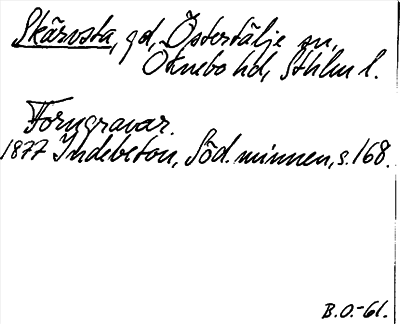 Skärvsta, gd, Östertälje sn,
Öknebo hd, Sthlm l.
Forngravar.
1877 Indebetou, Söd. minnen, s. 168.
B.O.-61.